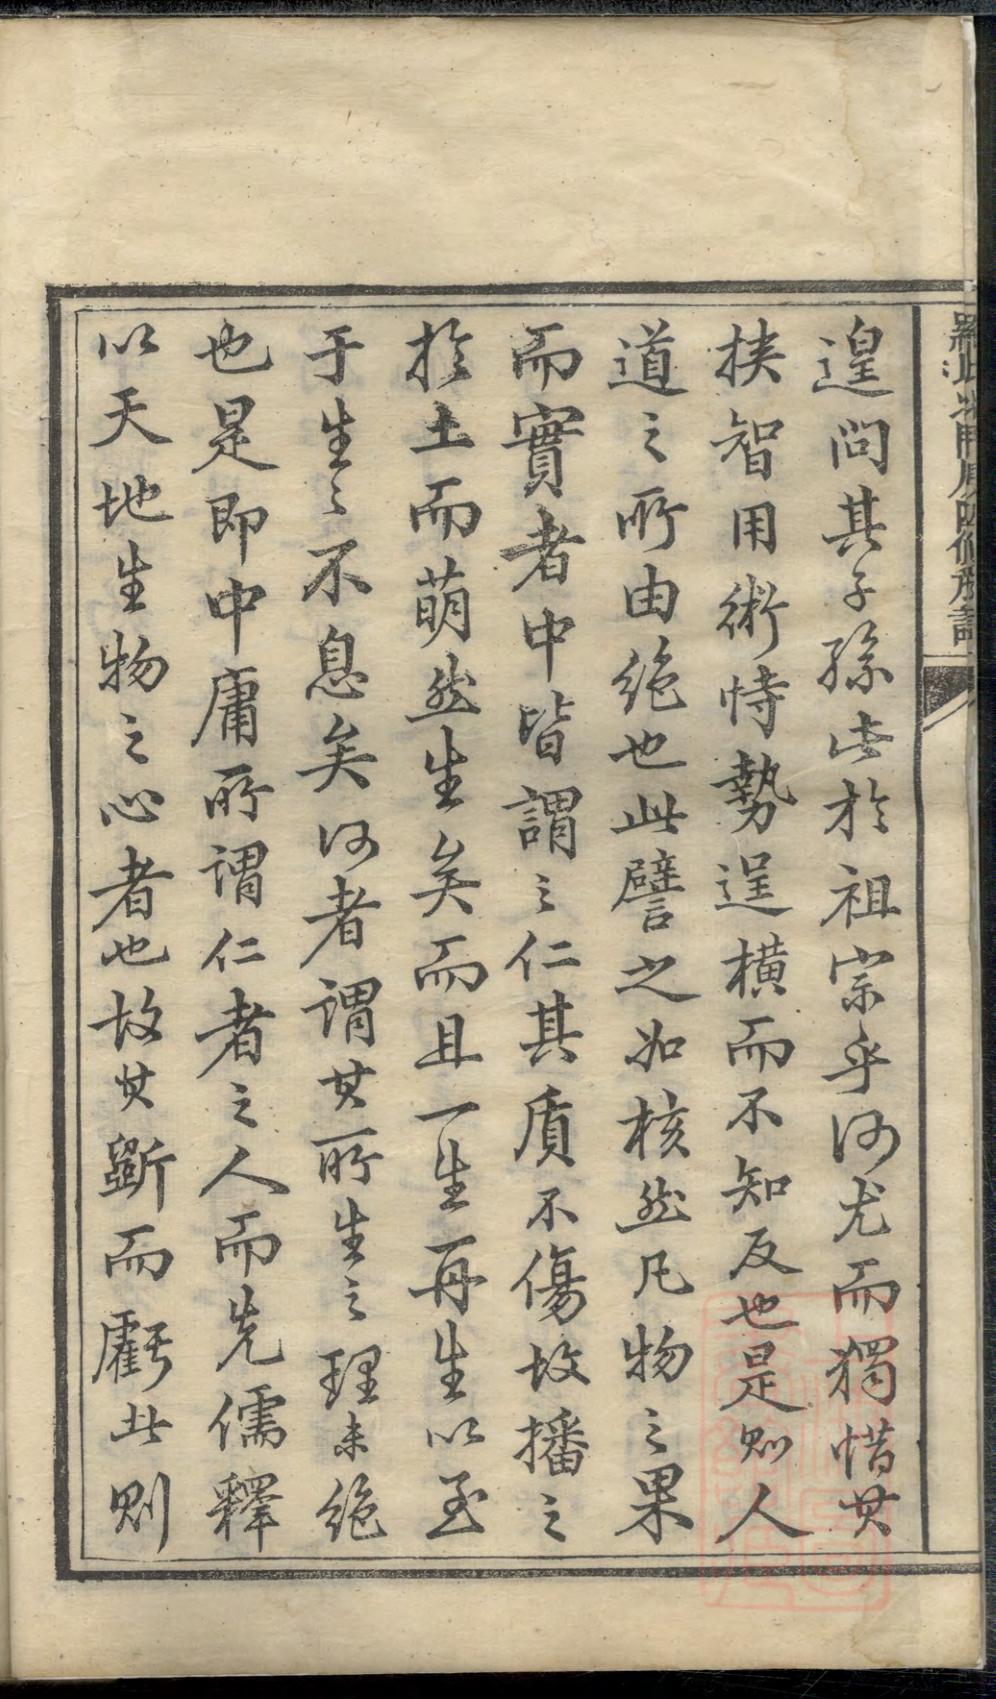 遑問其子孫此於祖宗乎何尤而獨惜其
挾智用術恃勢逞橫而不知反也是則人
道之所由絶也此譬之如核然凡物之果
而實者中皆謂之仁其質不傷故播之
於土而萌然生矣而且一生再生以至
于生生不息矣何者謂其所生之理未絶
也是即中庸所謂仁者之人而先儒釋
以天地生物之心者也故其斵而虧此則